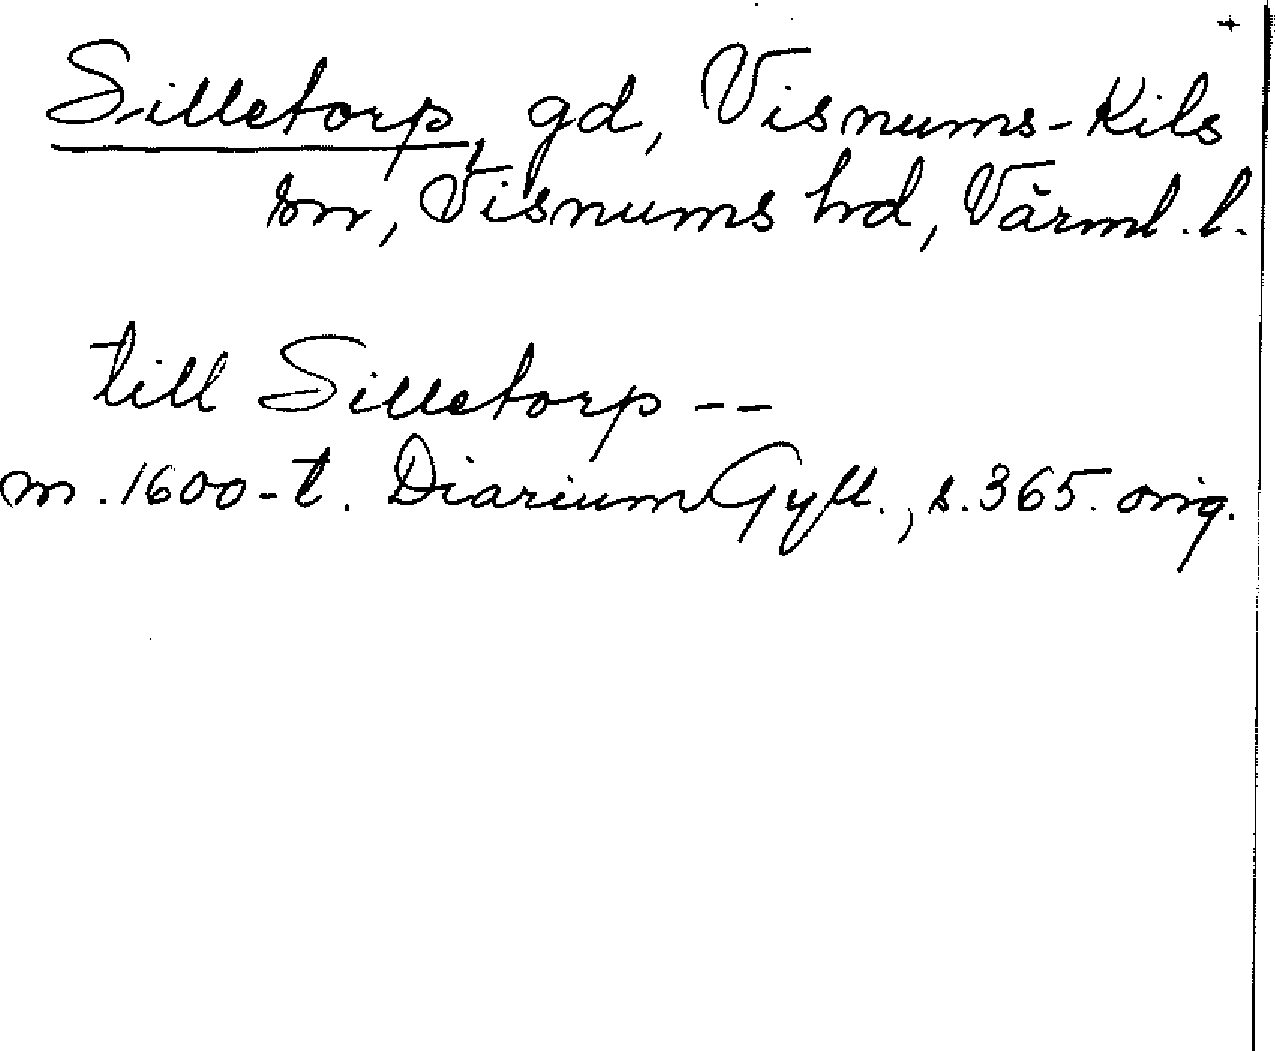 +
Silletorp, gd, Visnums-Kils
sn, Visnums hd, Värml. l.
till Silletorp --
m. 1600-t. Diarium Gyll., s. 365. orig.